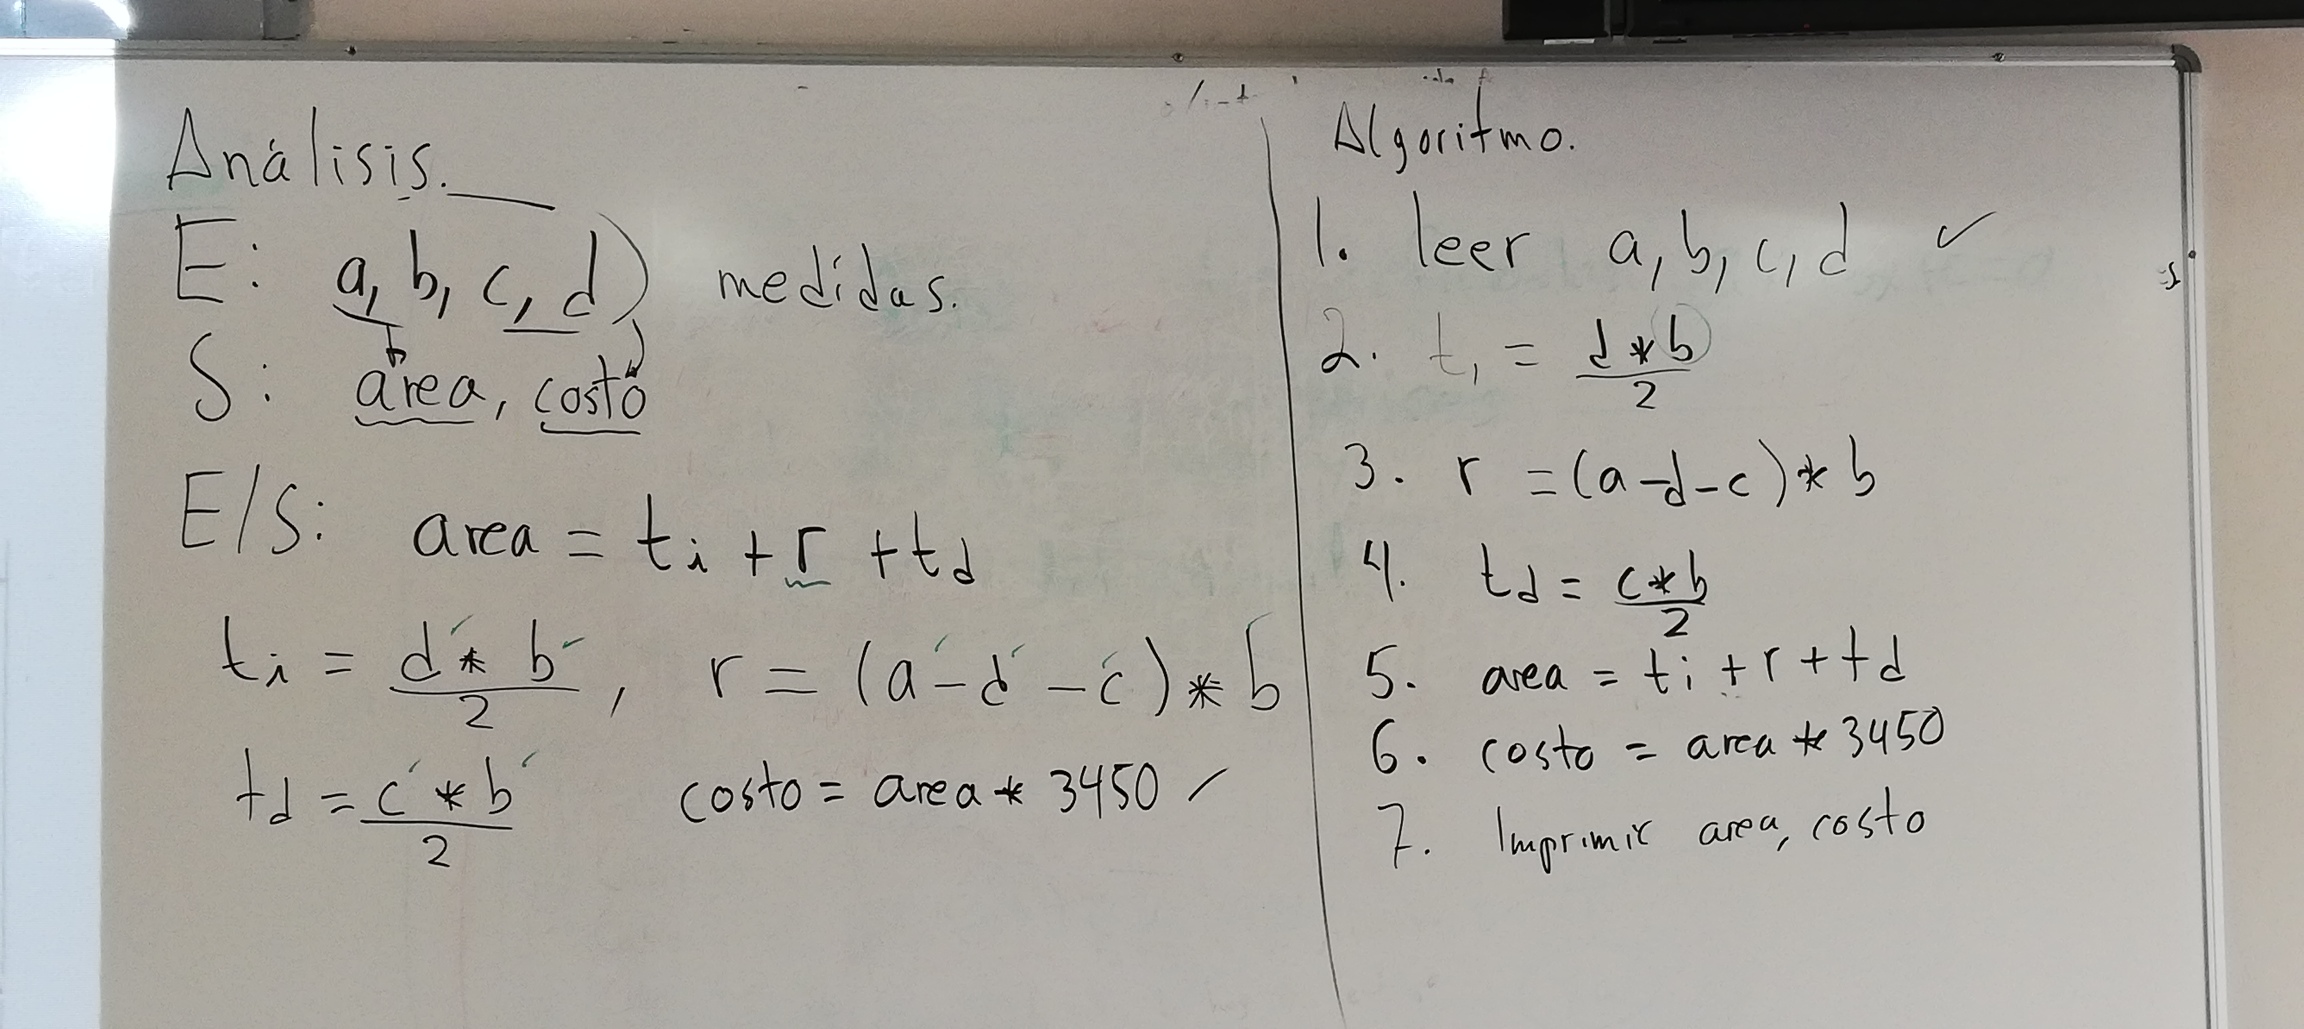 Análisis.
E: a, b, c, d) medidas.
S: area, costo
E/S: area = ti + r + td
ti = d * b / 2 , r = (a - d - c) * b
td = c * b / 2 costo = area * 3450
Algoritmo.
1. leer a, b, c, d ✓
2. t, = d * b / 2
3. r = (a-d-c) * b
4. td = c * b / 2
5. area = ti + r + td
6. costo = area * 3450
7. Imprimir area, costo